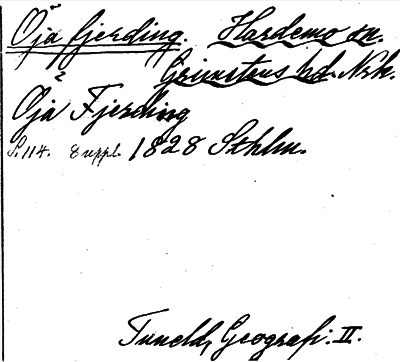 Öja fjerding. Hardemo sn.
Grimstens hd. Nrk.
Öja Fjerding
S. 114. 8 uppl. 1828 Sthlm.
Tuneld, Geografi. II.